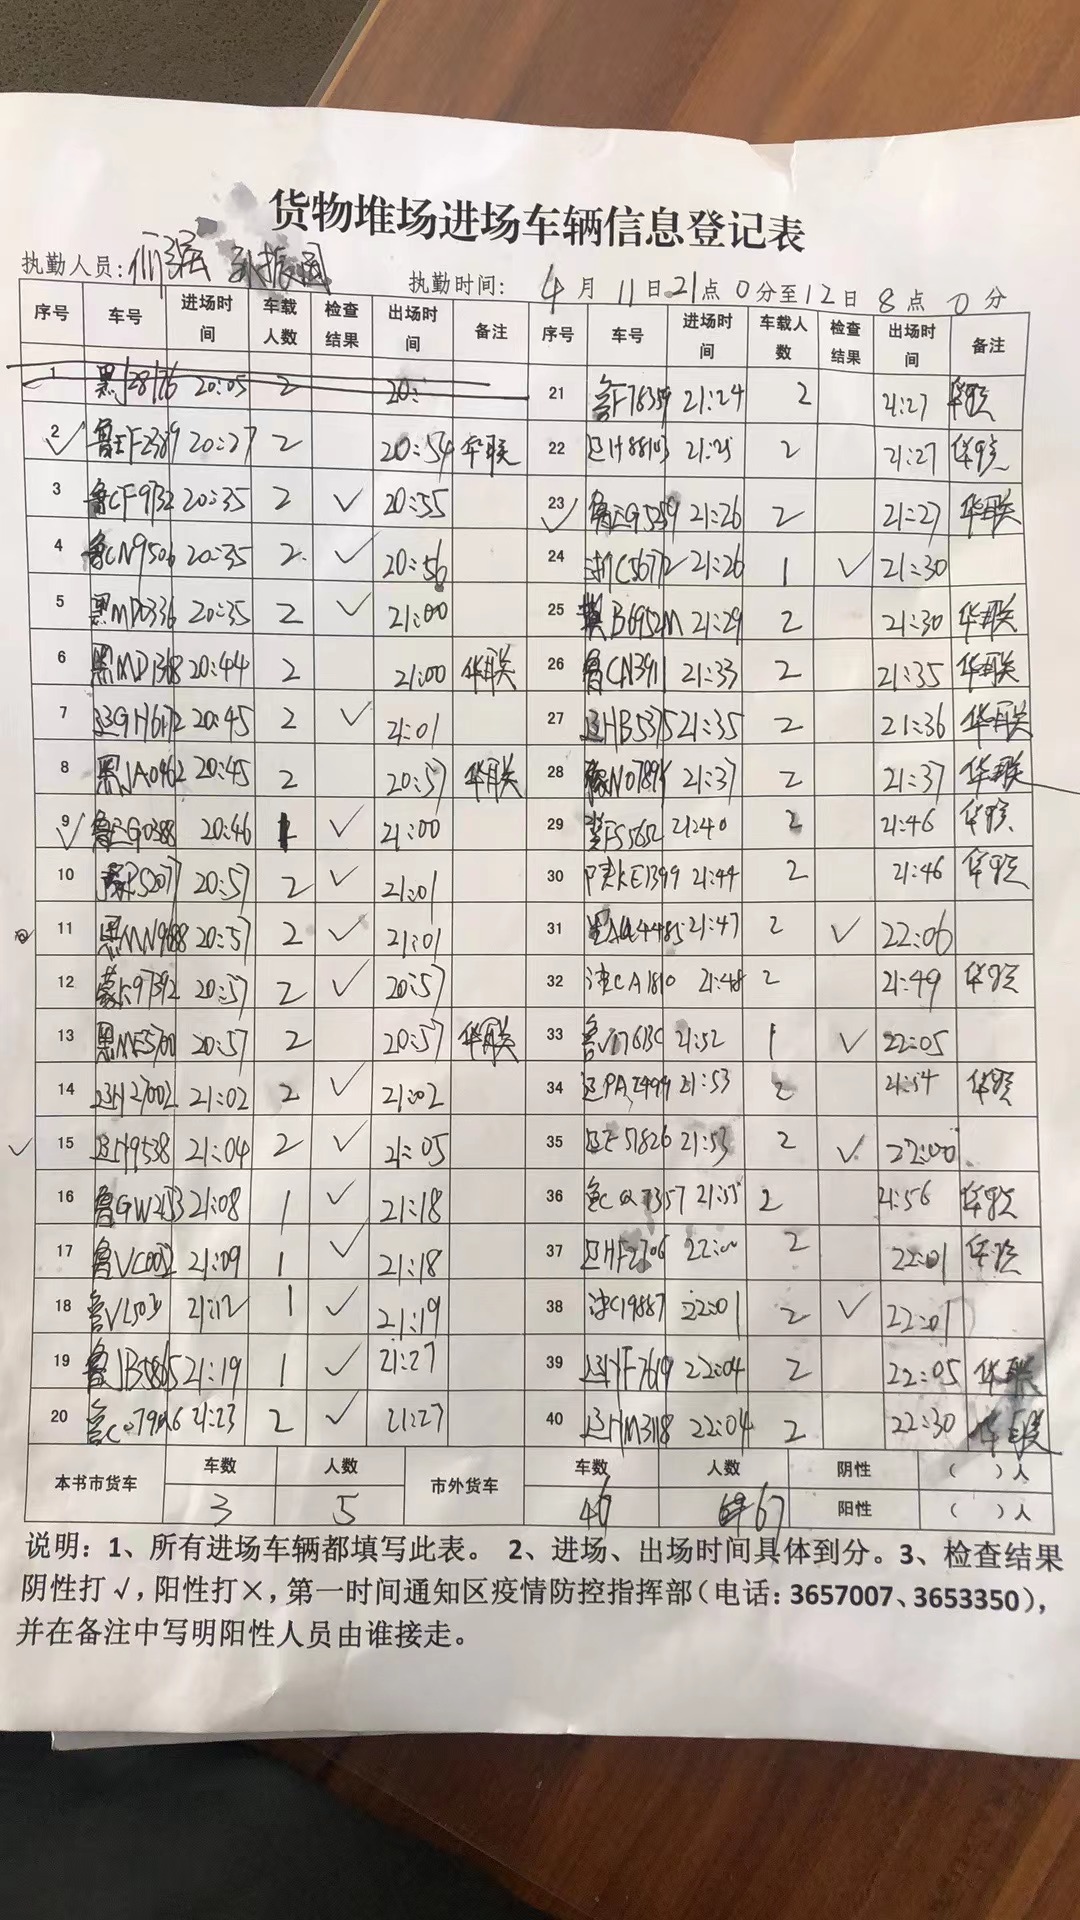 货物堆场进场车辆信息登记表
执勤人员:
执勤时间: 4月11日21点0分至12日8点0分
序号 车号 进场时间 车载人数 检查结果 出场时间 备注 序号 车号 进场时间 车载人数 检查结果 出场时间 备注
1 20:05 2 20: 21 鲁F78359 21:24 2 21:27 华联
2 20:27 2 20:54 华联 22 辽H88103 21:25 2 21:27 华联
3 鲁CF9732 20:35 2 √ 20:55 23 21:26 2 21:27 华联
4 鲁CN9506 20:35 2 √ 20:56 24 浙C5677 21:26 1 √ 21:30
5 黑MD0336 20:35 2 √ 21:00 25 冀B6952M 21:29 2 21:30 华联
6 黑MD1368 20:44 2 21:00 华联 26 鲁CN3911 21:33 2 21:35 华联
7 辽GH6172 20:45 2 √ 21:01 27 辽HB5375 21:35 2 21:36 华联
8 黑JA0462 20:45 2 20:57 华联 28 21:37 2 21:37 华联
9 鲁EG0388 20:46 1 √ 21:00 29 21:40 2 21:46 华联
10 20:57 2 √ 21:01 30 陕KE1399 21:44 2 21:46 华联
11 黑MN9688 20:57 2 √ 21:01 31 21:47 2 √ 22:06
12 20:57 2 √ 20:57 32 津CA1810 21:48 2 21:49 华联
13 黑ME5700 20:57 2 20:57 华联 33 21:52 1 √ 22:05
14 辽H27002 21:02 2 √ 21:02 34 21:53 2 21:54 华联
15 辽H9538 21:04 2 √ 21:05 35 21:53 2 √ 22:00
16 鲁GW2453 21:08 1 √ 21:18 36 21:55 2 21:56 华联
17 鲁VC0052 21:09 1 √ 21:18 37 辽HF2706 22:00 2 22:01 华联
18 鲁VL503 21:12 1 √ 21:19 38 津C19887 22:01 2 √ 22:01
19 鲁JB5865 21:19 1 √ 21:27 39 辽HF7619 22:04 2 22:05 华联
20 21:23 2 √ 21:27 40 辽HM3118 22:04 2 22:30 华联
本书市货车 车数 人数 市外货车 车数 人数 阴性 ( )人
3 5 67 阳性 ( )人
说明:1、所有进场车辆都填写此表。 2、进场、出场时间具体到分。3、检查结果
阴性打√,阳性打×,第一时间通知区疫情防控指挥部(电话:3657007、3653350),
并在备注中写明阳性人员由谁接走。